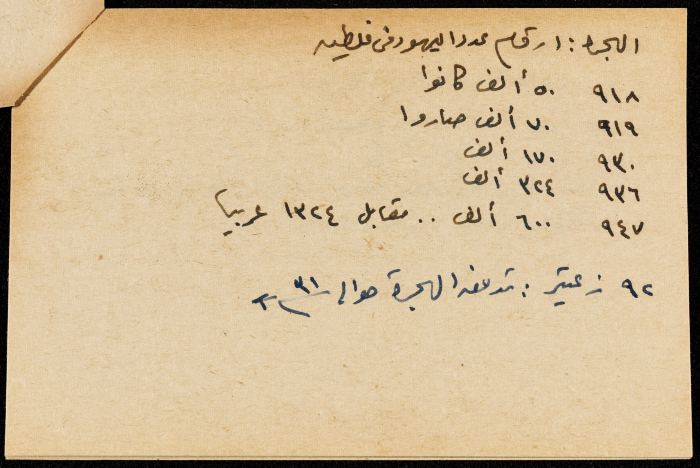 الهجرة : ارقام عدد اليهود في فلسطين
٩١٨ ٥٠ ألف كانوا
٩١٩ ٧٠ ألف صاروا
٩٣٠ ١٧٠ ألف
٩٣٦ ٣٢٤ ألف
٩٤٧ ٦٠٠ ألف .. مقابل ١٣٢٤ عربيا
٩٢ زعيتر : الهجرة حوالي ٣١